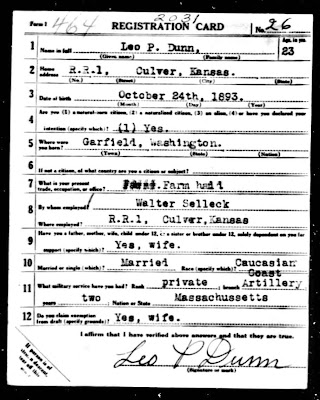 2031
Form 1 464 REGISTRATION CARD No. 26
1 Name in full Leo P. Dunn, Age, in yrs. 23
(Given name) (Family name)
2 Home address R.R.1, Culver, Kansas.
(No.) (Street) (City) (State)
3 Date of birth October 24th, 1893.
(Month) (Day) (Year)
4 Are you (1) a natural-born citizen, (2) a naturalized citizen, (3) an alien, (4) or have you declared your
intention (specify which)? (1) Yes.
5 Where were you born? Garfield, Washington.
(Town) (State) (Nation)
6 If not a citizen, of what country are you a citizen or subject?
7 What is your present trade, occupation, or office? Farm hand
8 By whom employed? Walter Selleck
Where employed? R.R.1, Culver,Kansas
9 Have you a father, mother, wife, child under 12, or a sister or brother under 12, solely dependent on you for
support (specify which)? Yes, wife.
10 Married or single (which)? Married Race (specify which)? Caucasian
11 What military service have you had? Rank private ; branch Coast Artillery
years two Nation or State Massachussetts
12 Do you claim exemption from draft (specify grounds)? Yes, wife.
I affirm that I have verified above answers and that they are true.
Leo P Dunn
(Signature or mark)
If person is of African descent, tear off this